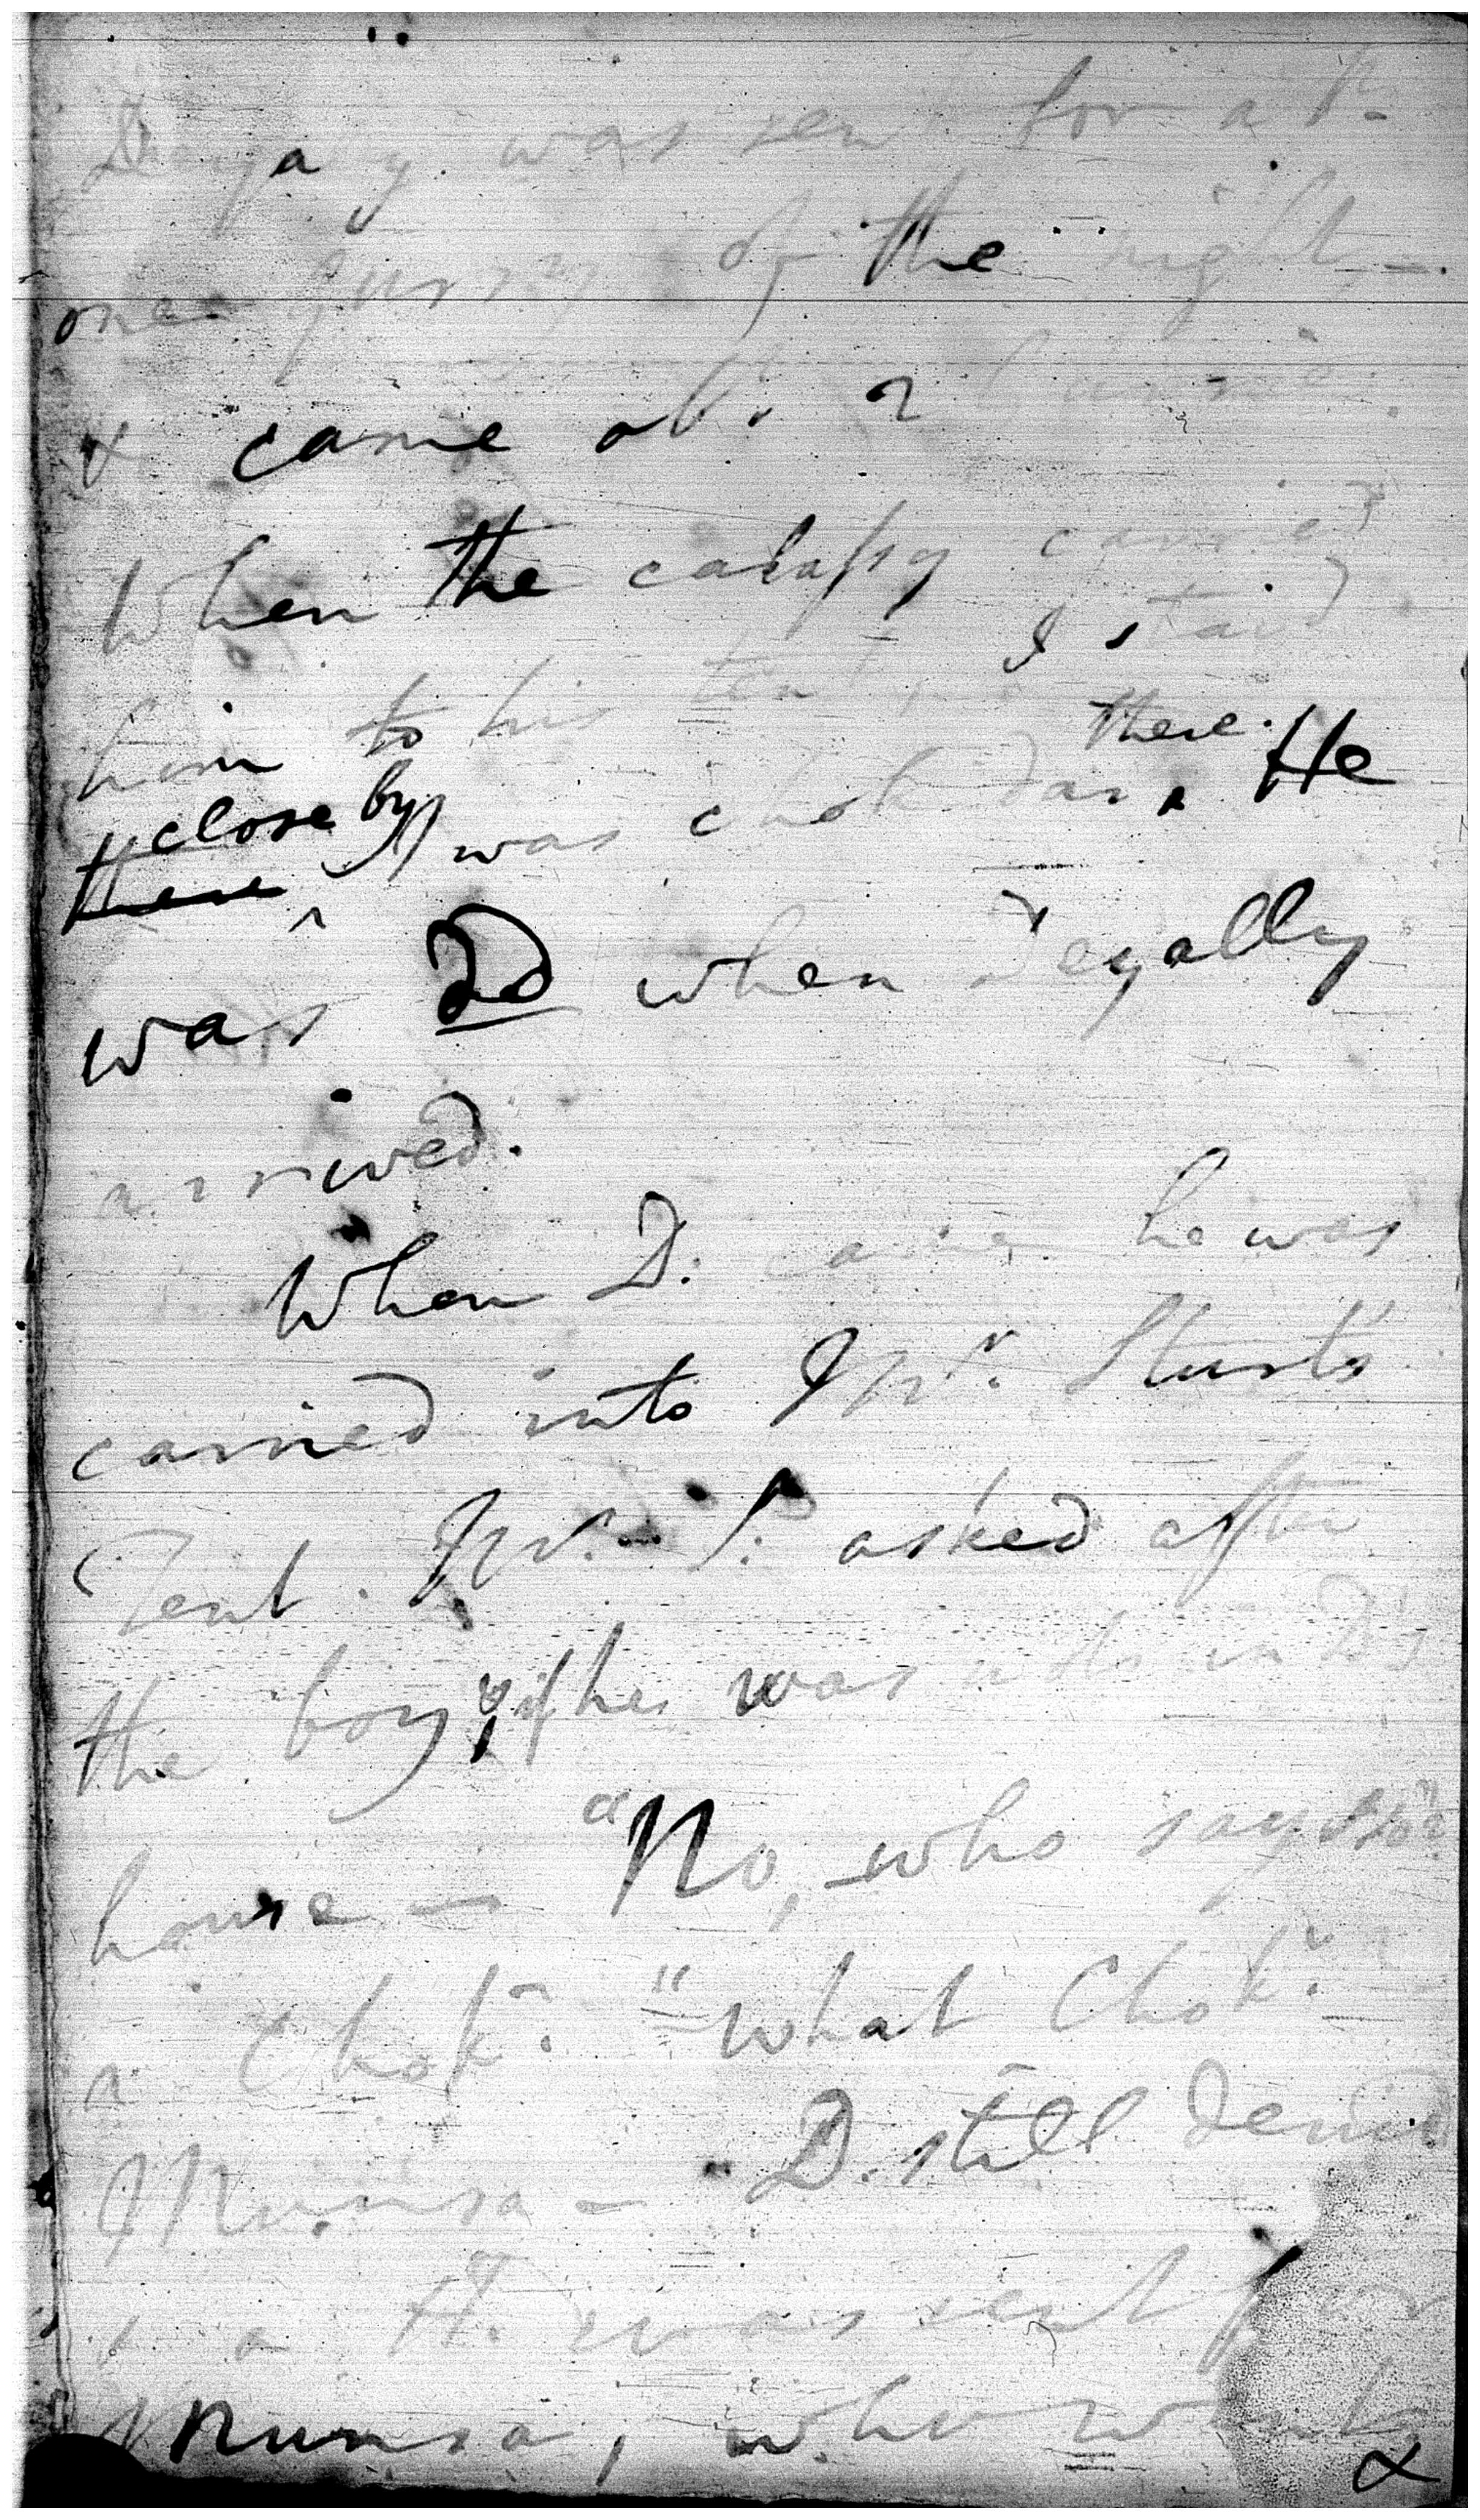 was sent for at
one gurry of the night —
& came abt. 2
When the calassy carried
him to his tent, I staid
there. He
close by
there ^ was chokdar,
was Do when Degally
arrived.
When D. came he was
carried into Mr. Sturt's
Tent. Mr. S. asked after
the boy; if he was not in D's
house — "No, who says so?"
a Chokr. "What Chokr."
Munsa — D. still denied
a Hr. was sent for
Munsa, who went
&